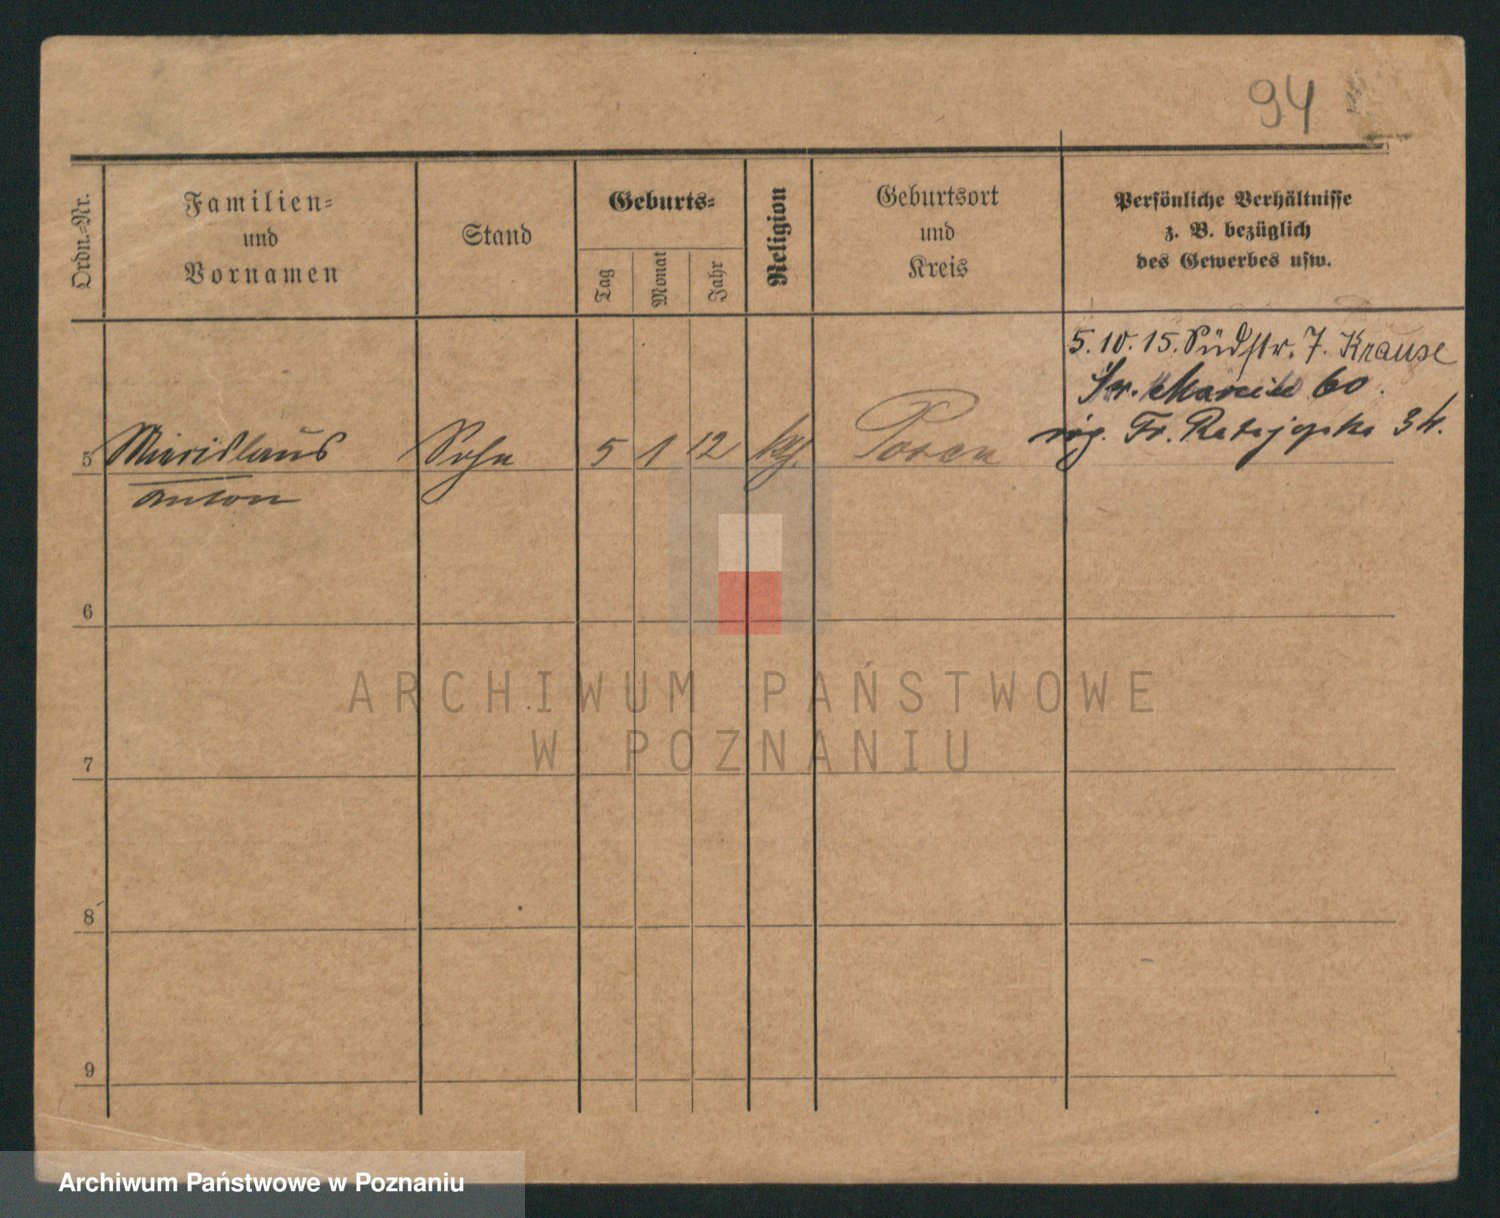 94
Ordn.-Nr.
Familien-
und
Vornamen
Stand
Geburts-
Tag
Monat
Jahr
Religion
Geburtsort
und
Kreis
Persönliche Verhältnisse
z. B. bezüglich
des Gewerbes usw.
5.10.15. Südstr. 7. Krause
Sw. Marcin 60.
róg. Fr. Ratajczaka 34.
5 Sohn 5 1 12 Posen
Anton
6
ARCHIWUM PAŃSTWOWE
W POZNANIU
7
8
9
Archiwum Państwowe w Poznaniu